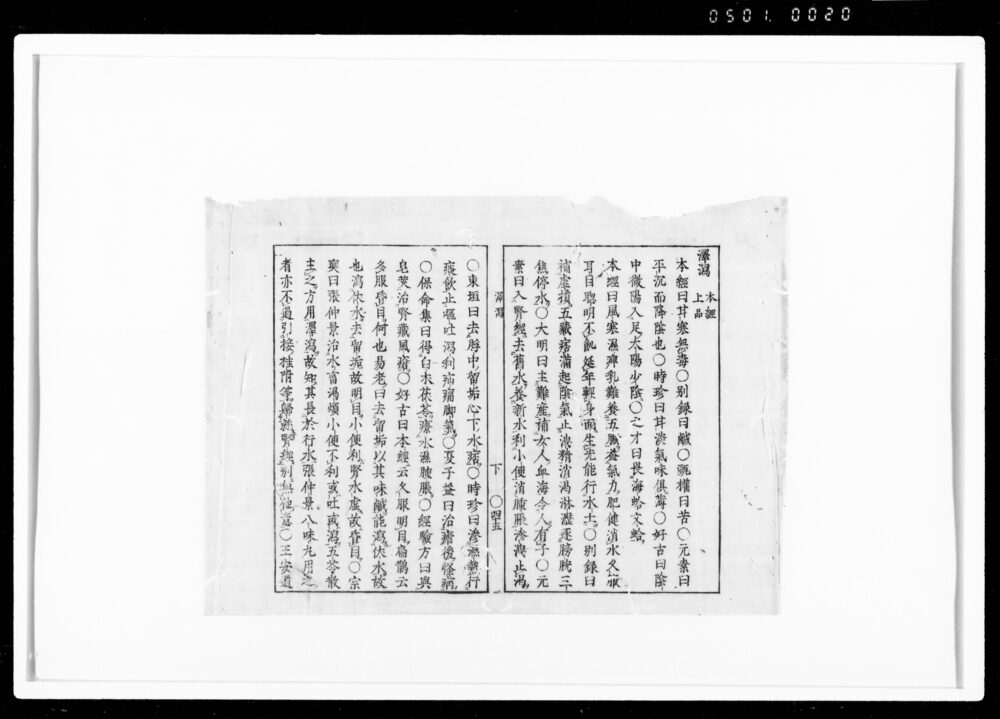 0501.0020
澤瀉 本經上品
本經曰甘寒無毒〇別錄曰鹹〇甄權曰苦〇元素曰
平沉而降陰也〇時珍曰甘淡氣味俱薄〇好古曰陰
中微陽入足太陽少陰〇之才曰畏海蛤文蛤
本經曰風寒濕痺乳難養五臟益氣力肥健消水久服
耳目聰明不飢延年輕身面生光能行水上〇別錄曰
補虛損五臟痞滿起陰氣止洩精消渴淋瀝逐膀胱三
焦停水〇大明曰主難產補女人血海令人有子〇元
素曰入腎經去舊水養新水利小便消腫脹滲洩止渴
澤瀉 下 〇四五
〇東垣曰去脬中留垢心下水痞〇時珍曰滲濕熱行
痰飲止嘔吐瀉利疝痛脚氣〇夏子益曰治瘧後怪病
〇保命集曰得白朮茯苓療水濕腫脹〇經驗方曰與
皂莢治腎臟風瘡〇好古曰本經云久服明目扁鵲云
多服昏目何也易老曰去留垢以其味鹹能瀉伏水故
也瀉伏水去留垢故明目小便利腎水虛故昏目〇宗
奭曰張仲景治水畜渴煩小便不利或吐或瀉五苓散
主之方用澤瀉故知其長於行水張仲景八味丸用之
者亦不過引接桂附等歸就腎經別無他意〇王安道